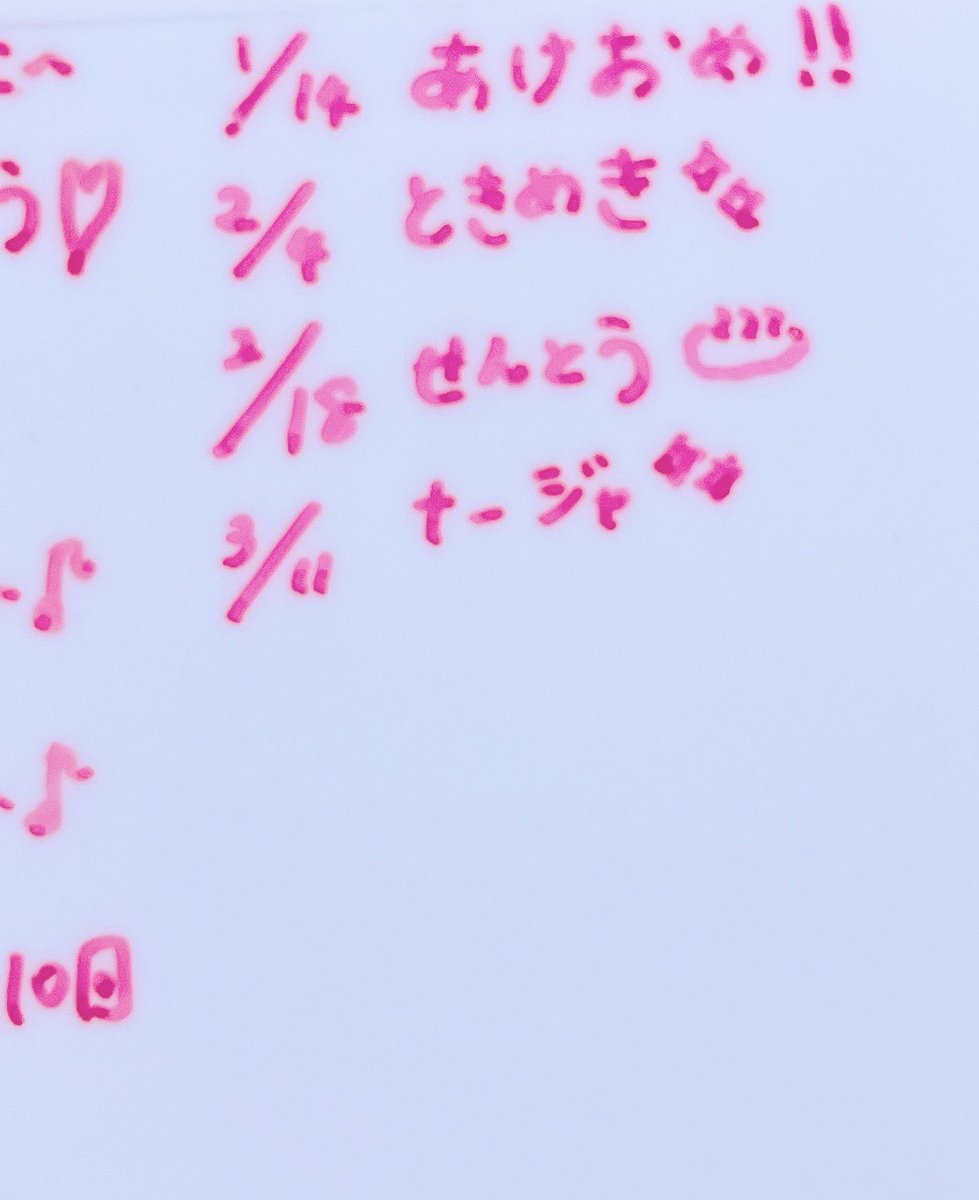 1/14 あけおめ!!
2/4 ときめき
2/18 せんとう
3/11 ナージャ
う♡
♪
♪
10回